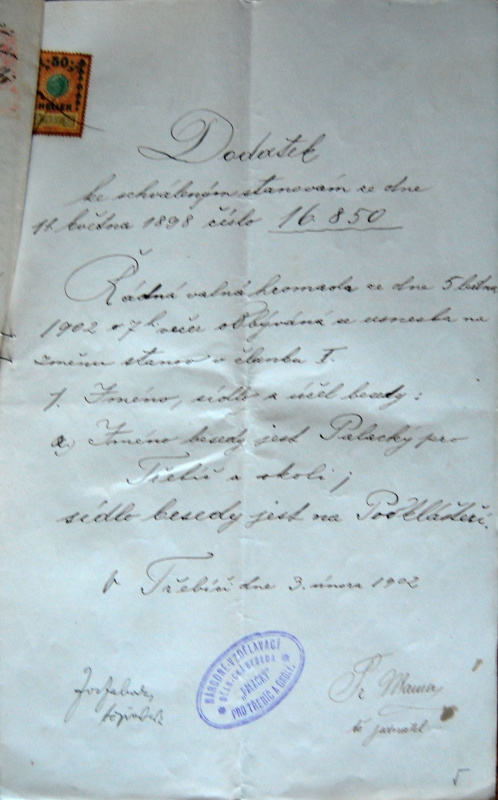 50
HELLER
Dodatek
ke schváleným stanovám ze dne
11. května 1898 číslo 16.850
Řádná valná hromada ze dne 5 ledna
1902 v 7 h večer odbývaná se usnesla na
změnu stanov v článku I.
1. Jméno, sídlo a účel besedy:
a, Jméno besedy jest Palacký pro
Třebíč a okolí;
sídlo besedy jest na Podklášteří.
V Třebíči dne 3. února 1902
NÁRODNĚ-VZDĚLAVACÍ
DĚLNICKÁ BESEDA
„PALACKÝ“
PRO TŘEBÍČ A OKOLÍ.
Fr.
t. č. jednatel
5